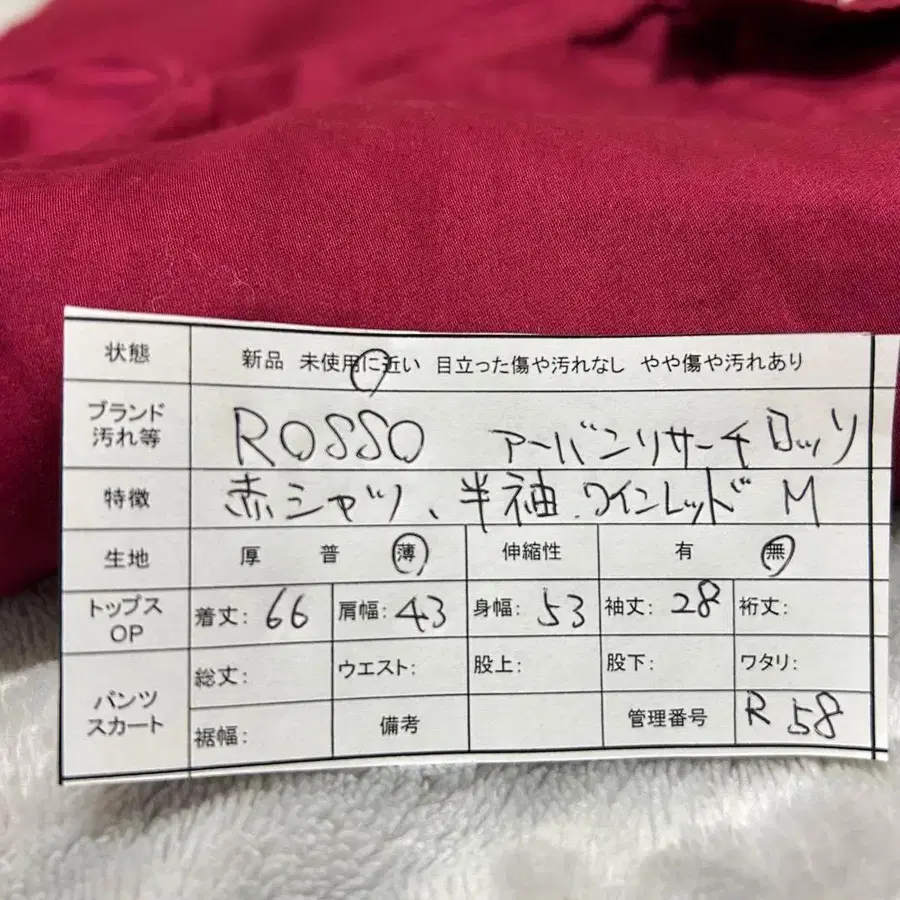 状態 新品 未使用に近い 目立った傷や汚れなし やや傷や汚れあり
ブランド
汚れ等 ROSSO アーバンリサーチロッソ
特徴 赤シャツ、半袖.ワインレッド M
生地 厚 普 薄 伸縮性 有 無
トップス
OP 着丈: 66 肩幅: 43 身幅: 53 袖丈: 28 裄丈:
パンツ
スカート 総丈: ウエスト: 股上: 股下: ワタリ:
裾幅: 備考 管理番号 R 58